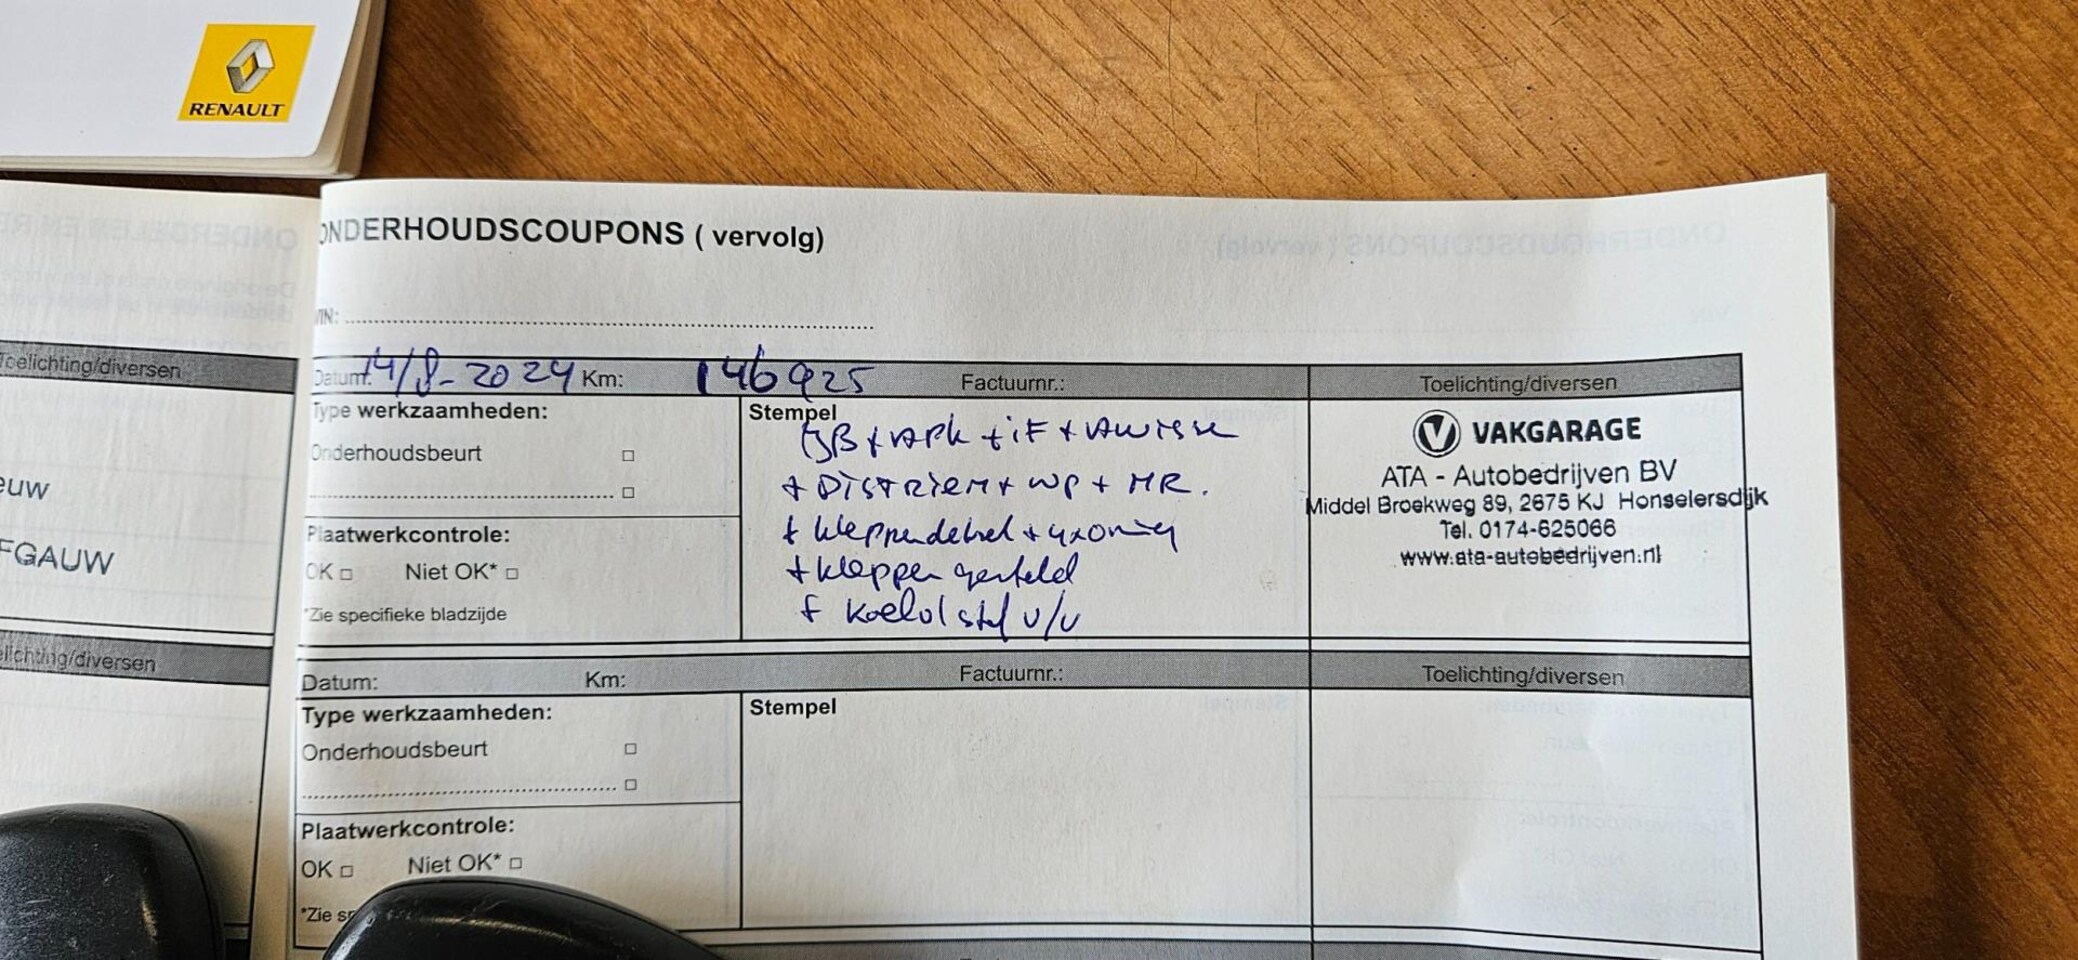 RENAULT
ONDERHOUDSCOUPONS ( vervolg)
VIN:
Toelichting/diversen
Datum: 14/8-2024 Km: 146925 Factuurnr.: Toelichting/diversen
Type werkzaamheden:
Stempel
GB + APK + iF + AW
Onderhoudsbeurt
+ DISTRIEM + WP + MR.
Plaatwerkcontrole:
+ kleppendeksel +
OK Niet OK*
+ kleppen gesteld
*Zie specifieke bladzijde
+ koelvlstf v/v
VAKGARAGE
ATA - Autobedrijven BV
Middel Broekweg 89, 2675 KJ Honselersdijk
Tel. 0174-625066
www.ata-autobedrijven.nl
euw
FGAUW
elichting/diversen
Datum: Km: Factuurnr.: Toelichting/diversen
Type werkzaamheden:
Stempel
Onderhoudsbeurt
Plaatwerkcontrole:
OK Niet OK*
*Zie